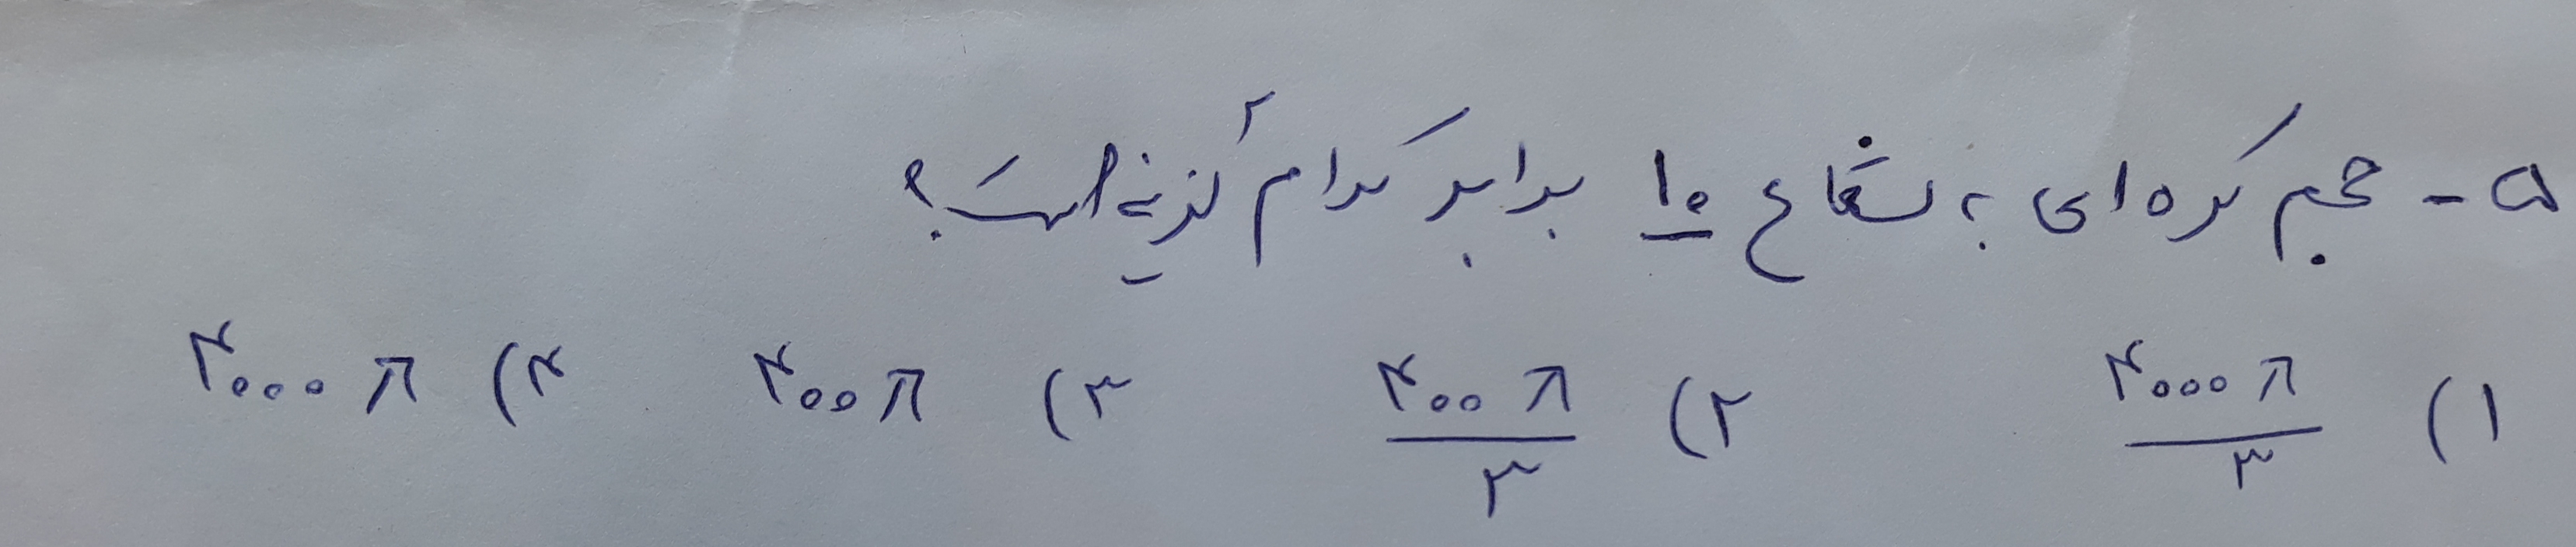 ۵- حجم کره ای به شعاع ۱۰ برابر کدام گزینه است؟
۱) ۴۰۰۰π/۳ ۲) ۴۰۰π/۳ ۳) ۴۰۰π ۴) ۴۰۰۰π